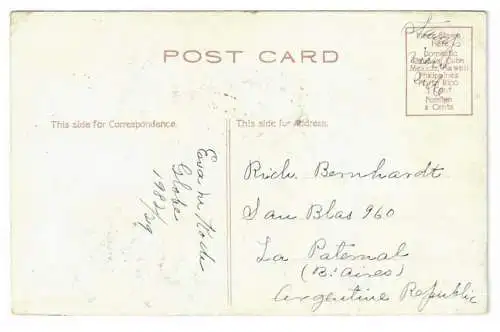 POST CARD
Place Stamp
here to
Domestic
Canada, Cuba
Mexico, Hawaii
Philippines
Porto Rico
1 Cent
Foreign
2 Cents
This side for Correspondence.
This side for Address.
Globe
Rich. Bernhardt
San Blas 960
La Paternal
(Bs. Aires)
Argentine Republic